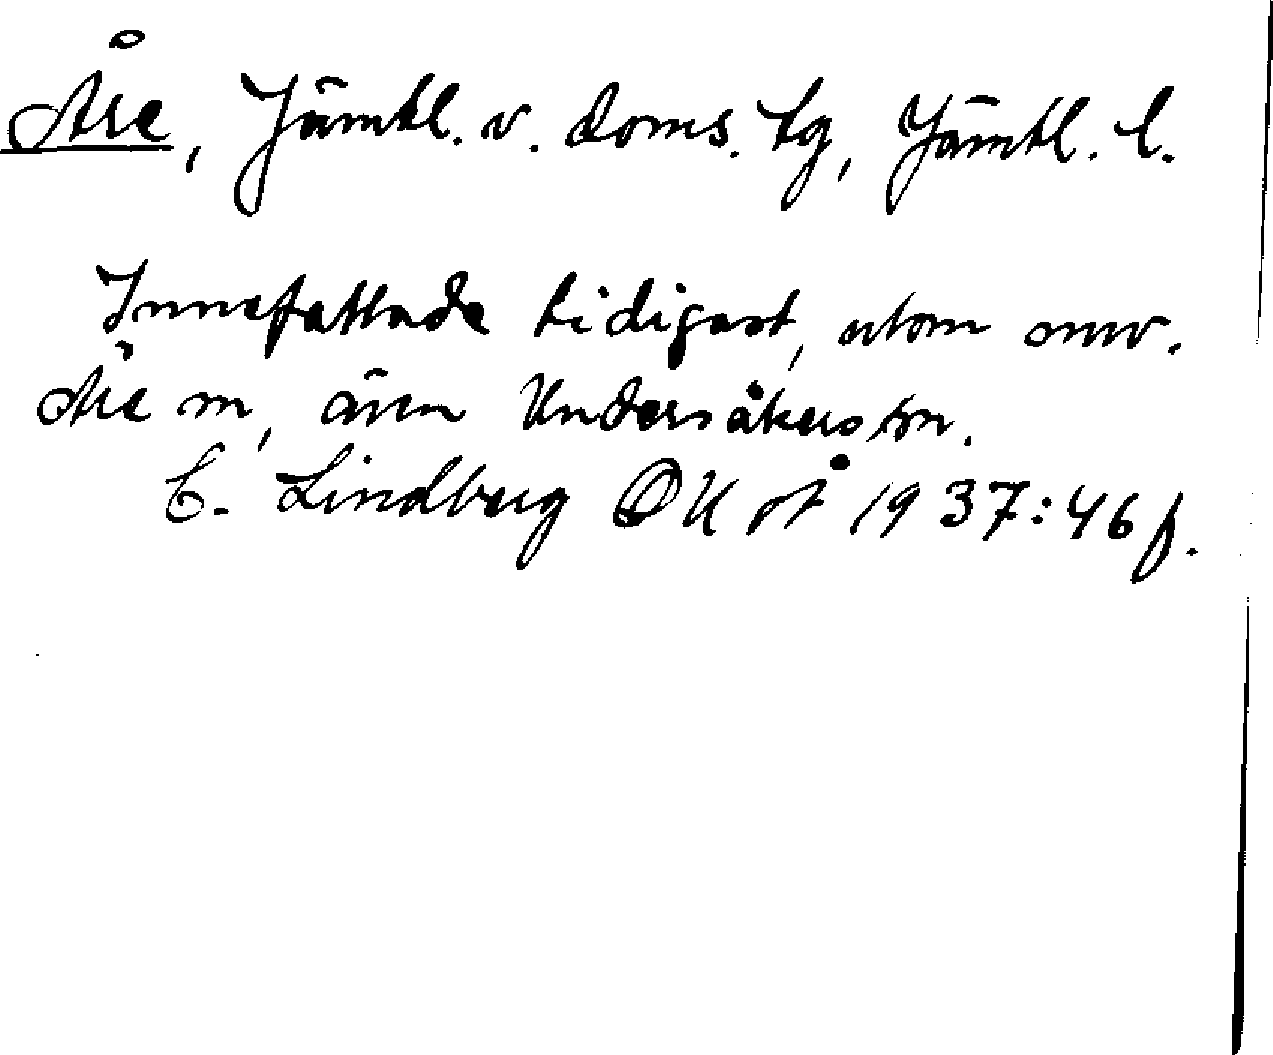 Åre, Jämtl. v. doms. tg, Jämtl. l.
Innefattade tidigast, utom nuv.
Åre sn, även Undersåkers sn.
C. Lindberg OUÅ 1937:46 f.